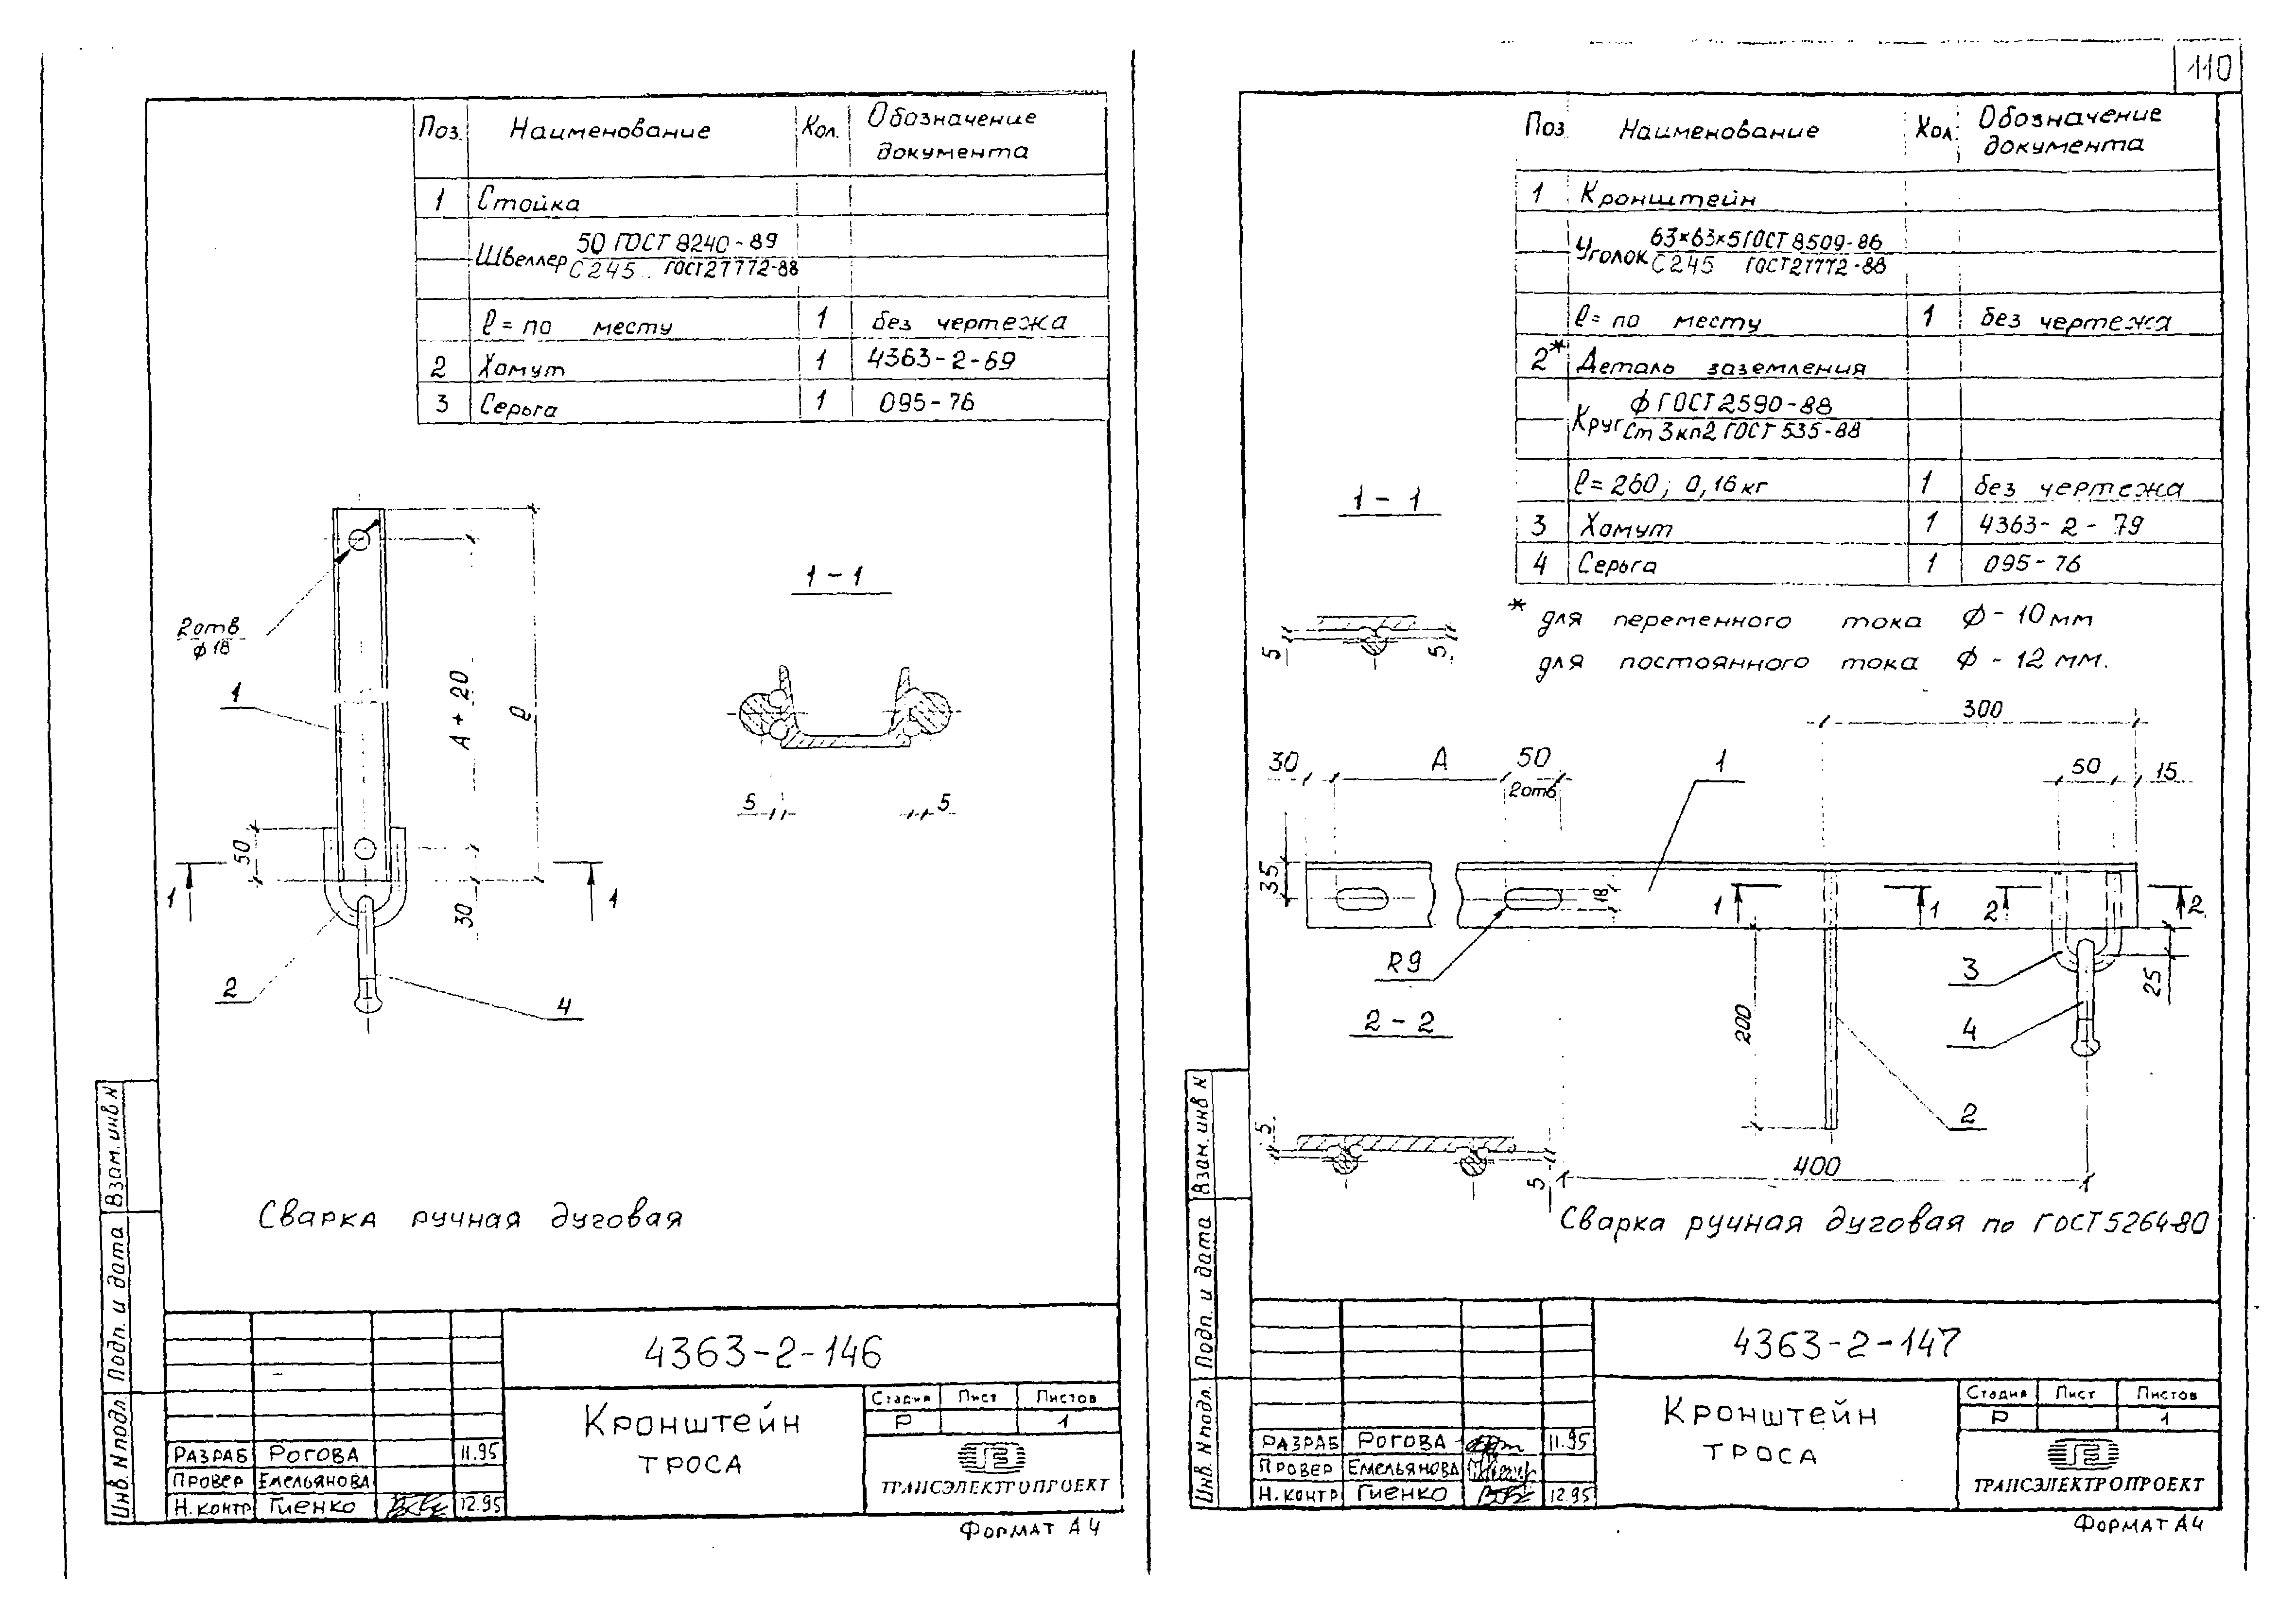 110
Поз. Наименование Кол. Обозначение документа
1 Стойка
Швеллер 50 ГОСТ 8240-89
С245 ГОСТ 27772-88
ℓ = по месту 1 без чертежа
2 Хомут 1 4363-2-69
3 Серьга 1 095-76
2 отв
ф 18
1
A + 20
ℓ
50
1
1
30
2
4
1-1
5
5
Сварка ручная дуговая
Взам. инв N
Подп. и дата
Инв. N подл.
4363-2-146
Кронштейн
троса
Стадия Лист Листов
Р 1
Разраб Рогова 11.95
Провер Емельянова
Н. контр Гиенко 12.95
ТРАНСЭЛЕКТРОПРОЕКТ
Формат А4
Поз Наименование Кол. Обозначение документа
1 Кронштейн
Уголок 63×63×5 ГОСТ 8509-86
С245 ГОСТ 27772-88
ℓ = по месту 1 без чертежа
2* Деталь заземления
Круг ф ГОСТ 2590-88
Ст 3кп2 ГОСТ 535-88
ℓ = 260; 0,16 кг 1 без чертежа
3 Хомут 1 4363-2-79
4 Серьга 1 095-76
* для переменного тока ф - 10 мм
для постоянного тока ф - 12 мм.
1-1
5
5
300
30 A 50 1 50 15
2 отв
35
18
1
1
2
2
R9
3
25
2-2
200
4
2
5
5
400
Сварка ручная дуговая по ГОСТ 5264-80
Взам. инв N
Подп. и дата
Инв. N подл.
4363-2-147
Кронштейн
троса
Стадия Лист Листов
Р 1
Разраб Рогова 11.95
Провер Емельянова
Н. контр Гиенко 12.95
ТРАНСЭЛЕКТРОПРОЕКТ
Формат А4